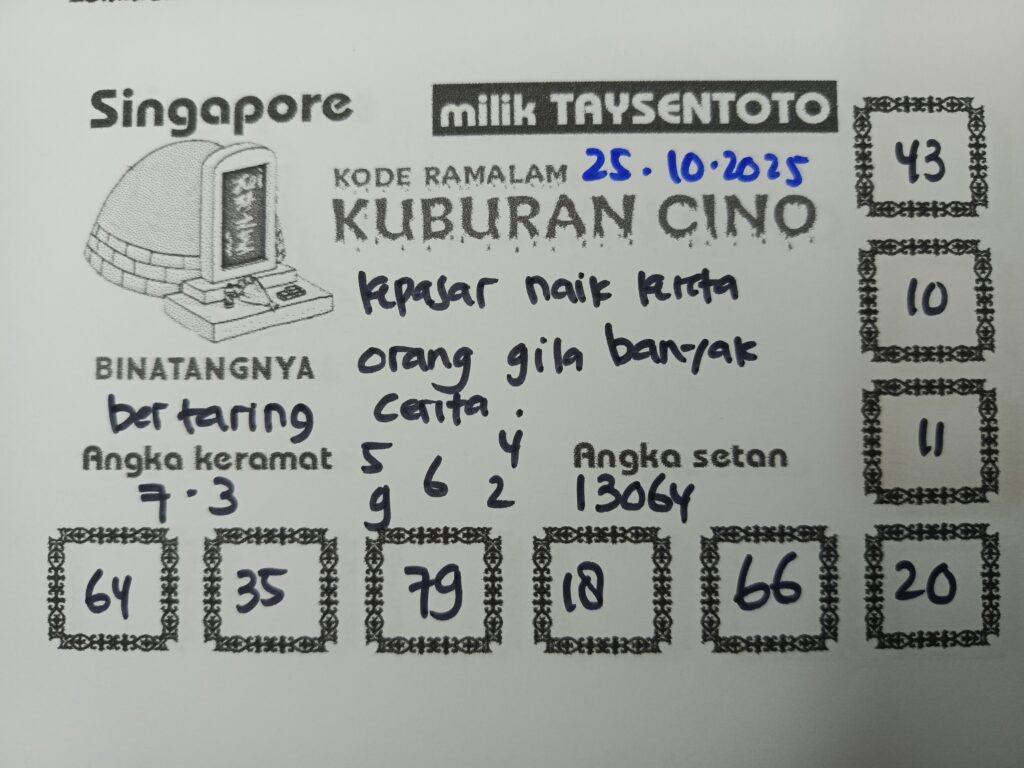 Singapore
milik TAYSENTOTO
KODE RAMALAM 25.10.2025
KUBURAN CINO
kepasar naik kereta
orang gila banyak
cerita.
BINATANGNYA
bertaring
Angka keramat
7.3
5 6 4
9 2
Angka setan
13064
43
10
11
64 35 79 18 66 20